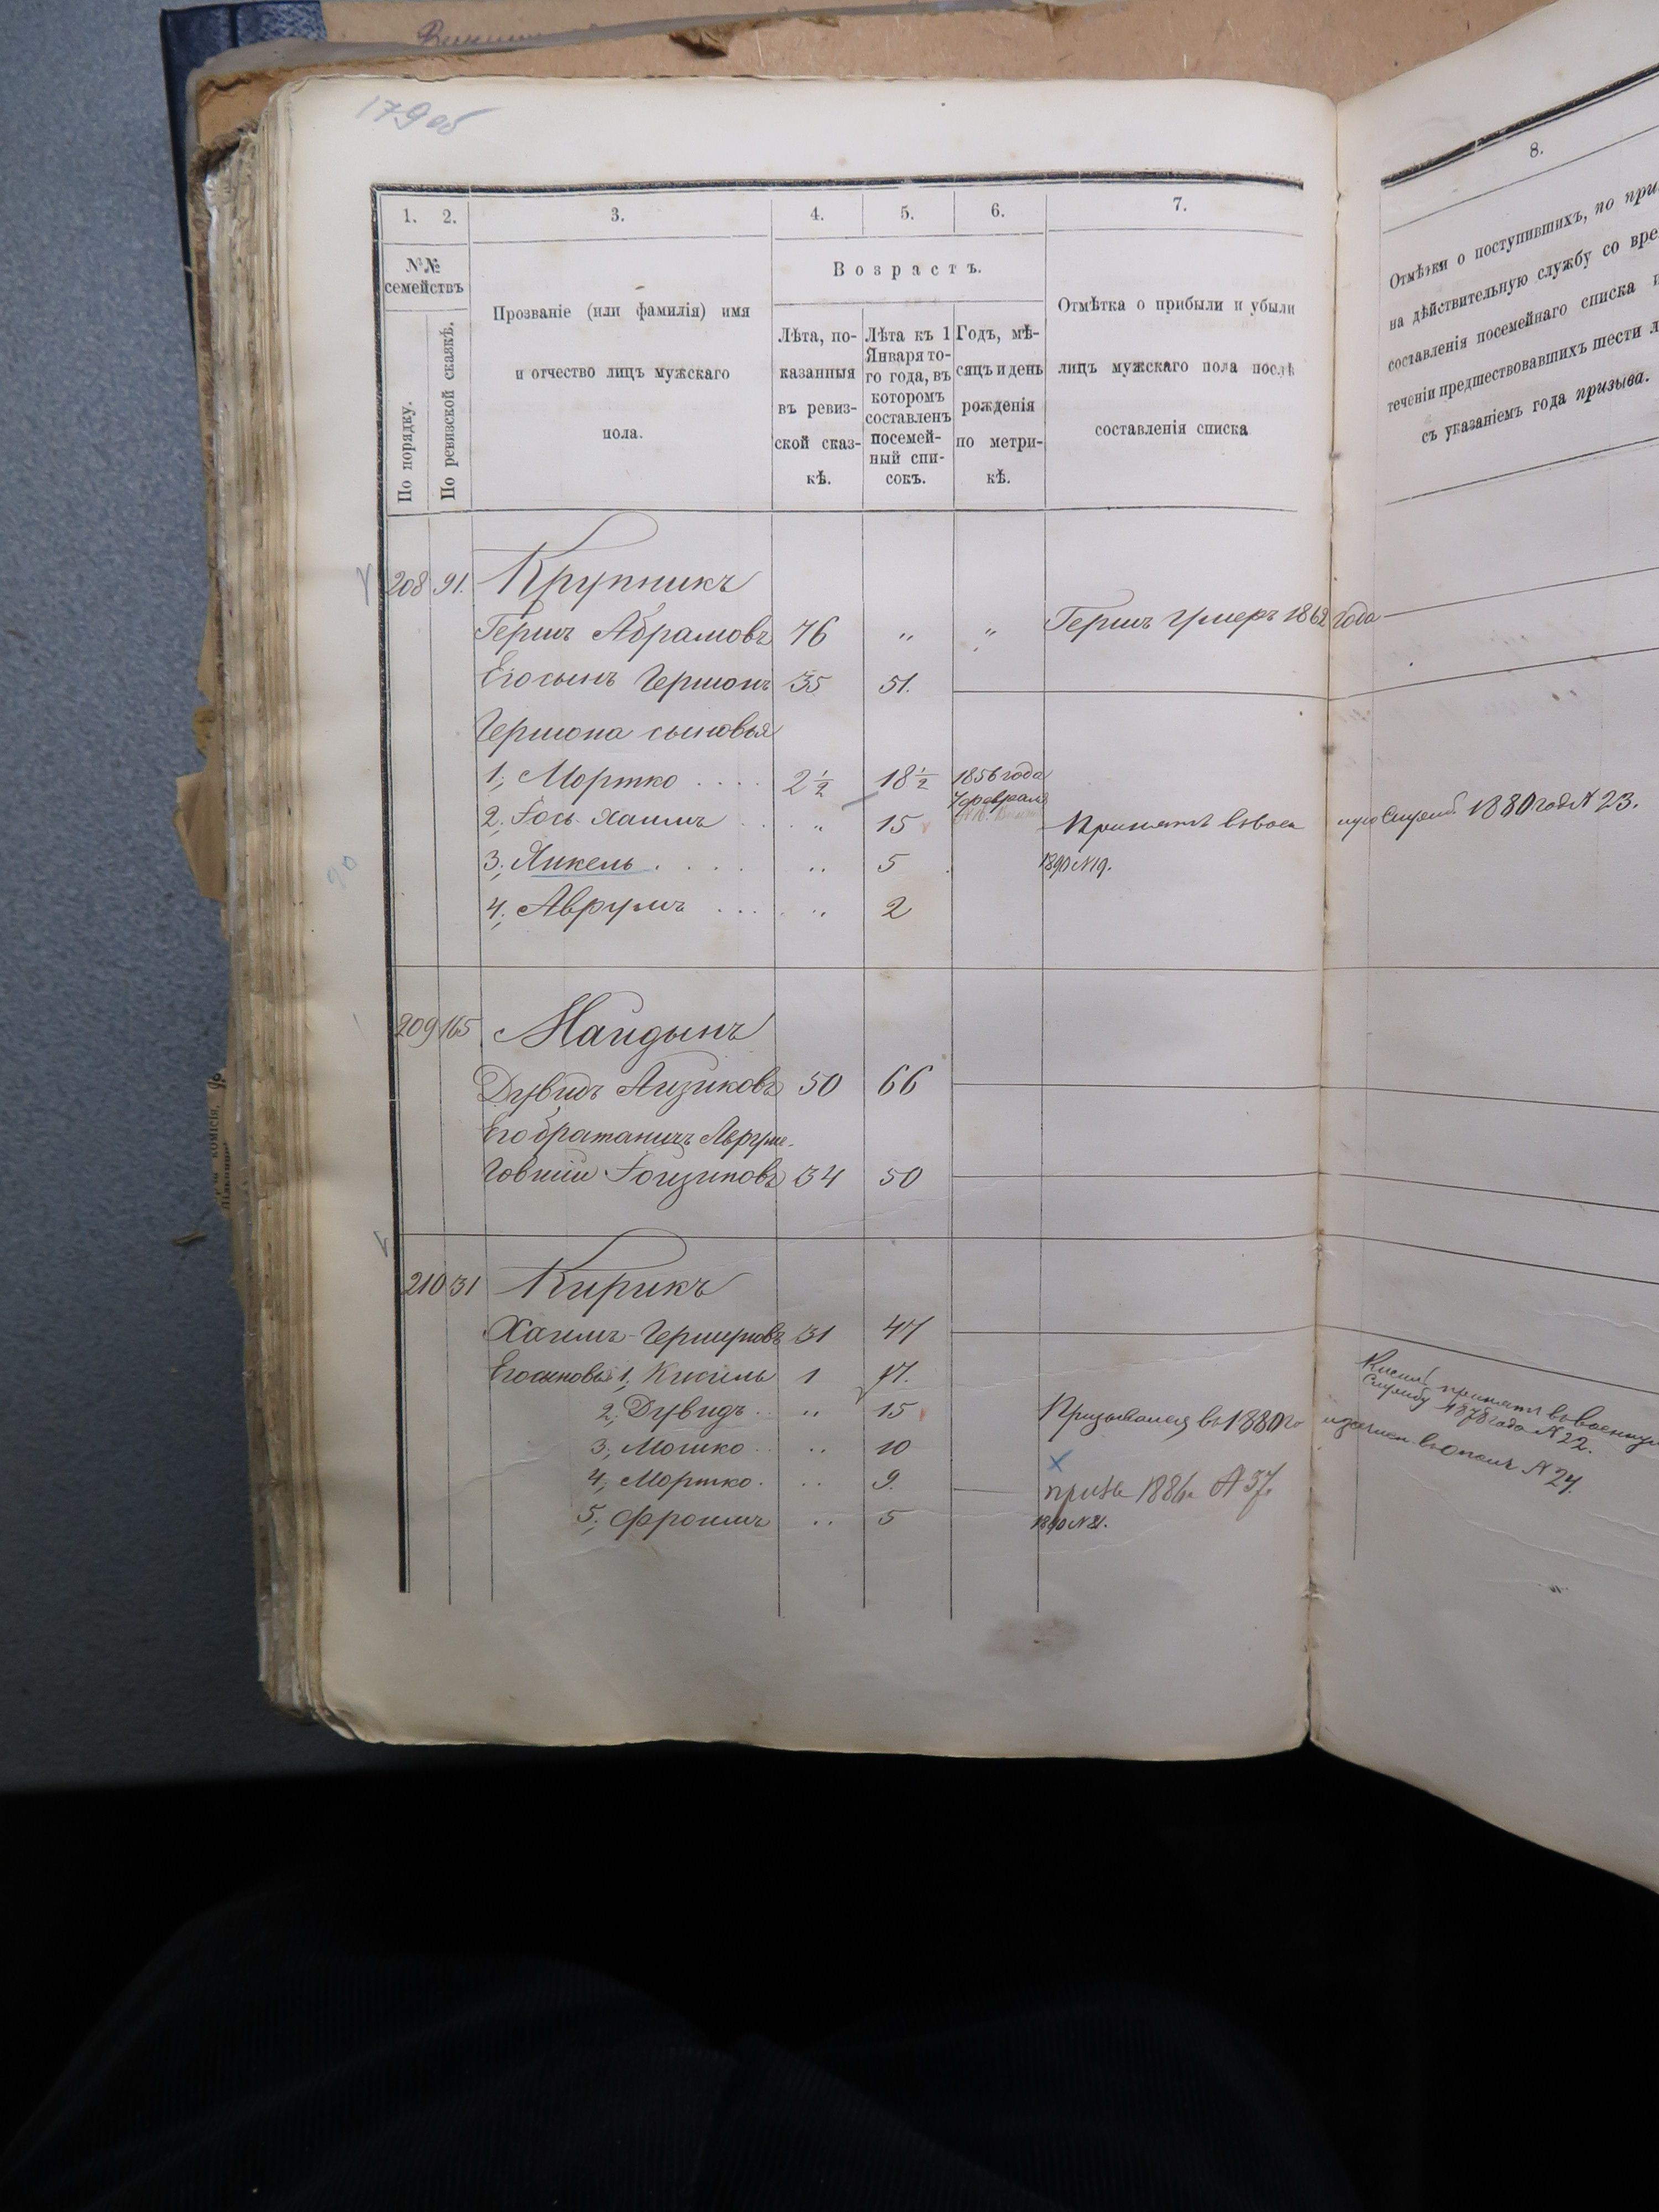 179 об
1. 2. 3. 4. 5. 6. 7. 8.
№№ семействъ
По порядку.
По ревизской сказкѣ.
Прозваніе (или фамилія) имя
и отчество лицъ мужскаго
пола.
Возрастъ.
Лѣта, по-
казанныя
въ ревиз-
ской сказ-
кѣ.
Лѣта къ 1
Января то-
го года, въ
которомъ
составленъ
посемей-
ный спи-
сокъ.
Годъ, мѣ-
сяцъ и день
рожденія
по метри-
кѣ.
Отмѣтка о прибыли и убыли
лицъ мужскаго пола послѣ
составленія списка
Отмѣтки о поступившихъ, по
на дѣйствительную службу со
составленія посемейнаго списка
теченіи предшествовавшихъ шести
съ указаніемъ года призыва.
208 91. Крупникъ
Гершъ Абрамовъ 76 " " Гершъ Умеръ 1862 года
Его сынъ Гершонъ 35 51.
Гершона сыновья
1, Мортко .... 2 1/2 18 1/2 1856 года
7 февраля
2, Іось Хаимъ " 15 Принятъ въ воен ную Службу 1880 год № 23.
90
3, Янкель .... " 5 1890 № 19.
4, Аврумъ ... " 2
209 165 Майдынъ
Дувидъ Айзиковъ 50 66
Его братаничъ Аврум-
Говшии 34 50
210 31 Кирикъ
Хаимъ Гершуновъ 31 47
Его сыновья 1, Кисиль 1 17.
Кисиль принятъ въ военную
Службу 1878 года № 22.
2, Дувидъ .. " 15 Призывался въ 1880 го № 24.
3, Мошко .. " 10
4, Мортко. " 9. призв 1886 № 37.
5, Фроимъ " 5 1890 № 21.